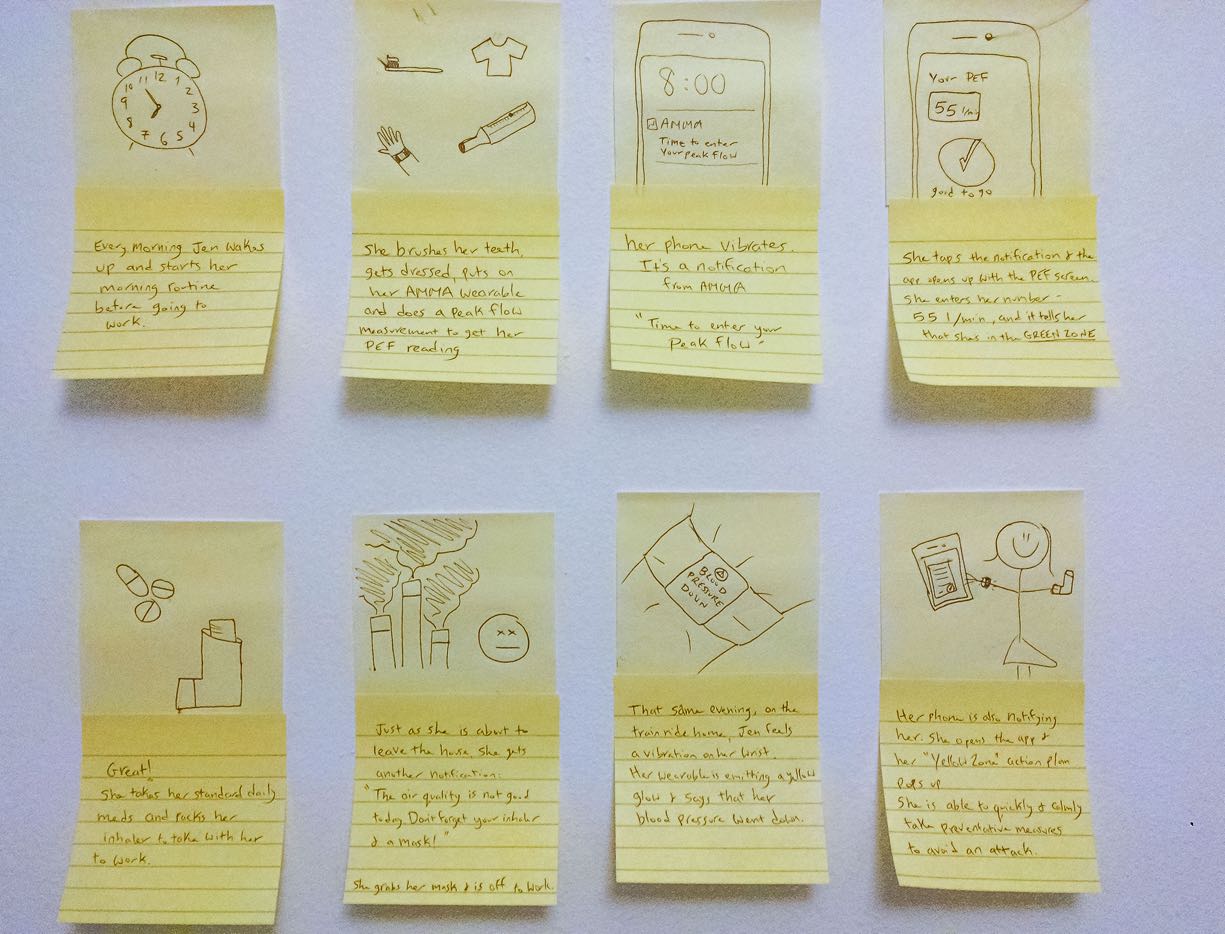 10 11 12 1
9 2
8 3
7 6 5 4
Every morning Jen wakes
up and starts her
morning routine
before going to
work.
She brushes her teeth,
gets dressed, puts on
her AMMA wearable
and does a peak flow
measurement to get her
PEF reading
8:00
AMMA
Time to enter
Your peak flow
her phone vibrates.
It's a notification
from AMMA
"Time to enter your
peak flow"
Your PEF
55 l/min
good to go
She taps the notification & the
app opens up with the PEF screen.
She enters her number -
55 l/min, and it tells her
that shes in the GREEN ZONE
Great!
She takes her standard daily
meds and packs her
inhaler to take with her
to work.
Just as she is about to
leave the house, she gets
another notification:
"The air quality is not good
today. Don't forget your inhaler
& a mask!"
She grabs her mask & is off to work.
BLOOD
PRESSURE
DOWN
That same evening, on the
train ride home, Jen feels
a vibration on her wrist.
Her wearable is emitting a yellow
glow & says that her
blood pressure went down.
Her phone is also notifying
her. She opens the app &
her "Yellow Zone" action plan
pops up
She is able to quickly & calmly
take preventative measures
to avoid an attack.